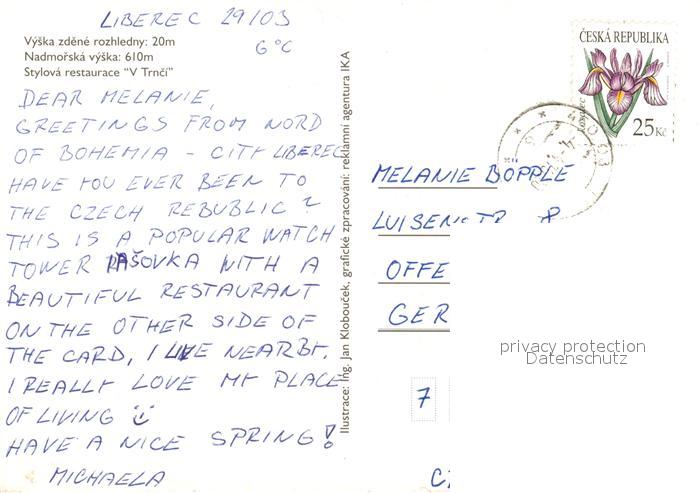 LIBEREC 29/03
6°C
Výška zděné rozhledny: 20m
Nadmořská výška: 610m
Stylová restaurace "V Trnčí"
DEAR MELANIE,
GREETINGS FROM NORD
OF BOHEMIA - CITY LIBEREC
HAVE YOU EVER BEEN TO
THE CZECH REBUBLIC?
THIS IS A POPULAR WATCH
TOWER RAŠOVKA WITH A
BEAUTIFUL RESTAURANT
ON THE OTHER SIDE OF
THE CARD, I LIVE NEARBY.
I REALLY LOVE MY PLACE
OF LIVING
HAVE A NICE SPRING!
MICHAELA
Ilustrace: Ing. Jan Klobouček, grafické zpracování: reklamní agentura IKA
ČESKÁ REPUBLIKA
Kosatec
25 Kč
MELANIE BÖPPLE
LUISENSTR 8
OFFE
GER
7
CZ
privacy protection
Datenschutz